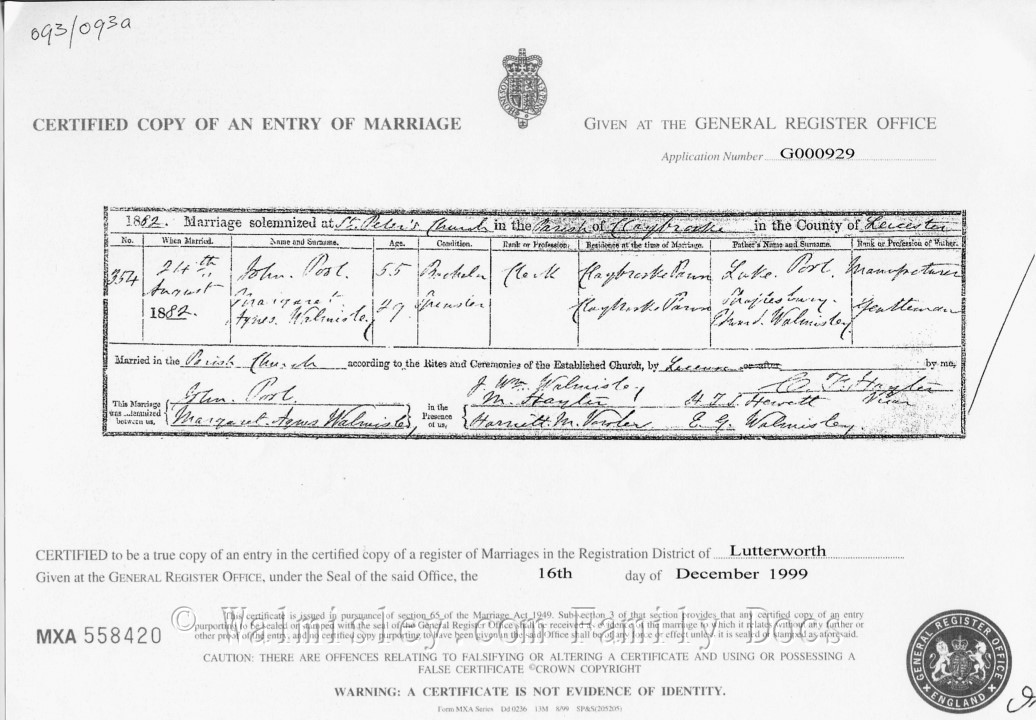 093/093a
CERTIFIED COPY OF AN ENTRY OF MARRIAGE
GIVEN AT THE GENERAL REGISTER OFFICE
Application Number G000929
1882. Marriage solemnized at St. Peter's Church in the Parish of Claybrooke in the County of Leicester
No. When Married. Name and Surname. Age. Condition. Rank or Profession. Residence at the time of Marriage. Father's Name and Surname. Rank or Profession of Father.
354 24th August 1882. John Pool 55 Bachelor Clerk Claybrooke Parva Luke Pool Manufacturer
Margaret Agnes Walmisley 49 Spinster Claybrooke Parva Edward Walmisley Gentleman
Married in the Parish Church according to the Rites and Ceremonies of the Established Church, by License or after by me,
This Marriage was solemnized between us, John Pool
Margaret Agnes Walmisley
in the Presence of us, J. Wm. Walmisley
M. Hayter
Harriett M.
H. T. J. Hewett
E. G. Walmisley.
Hayter
Vicar
CERTIFIED to be a true copy of an entry in the certified copy of a register of Marriages in the Registration District of Lutterworth
Given at the GENERAL REGISTER OFFICE, under the Seal of the said Office, the 16th day of December 1999
© Walmisley.com Family Doc.
This certificate is issued in pursuance of section 65 of the Marriage Act 1949. Sub-section 3 of that section provides that any certified copy of an entry
purporting to be sealed or stamped with the seal of the General Register Office shall be received as evidence of the marriage to which it relates without any further or
other proof of the entry, and no certified copy purporting to have been given in the said Office shall be of any force or effect unless it is sealed or stamped as aforesaid.
MXA 558420
CAUTION: THERE ARE OFFENCES RELATING TO FALSIFYING OR ALTERING A CERTIFICATE AND USING OR POSSESSING A
FALSE CERTIFICATE ©CROWN COPYRIGHT
WARNING: A CERTIFICATE IS NOT EVIDENCE OF IDENTITY.
Form MXA Series Dd 0236 13M 8/99 SPS(205205)
GENERAL REGISTER OFFICE
ENGLAND